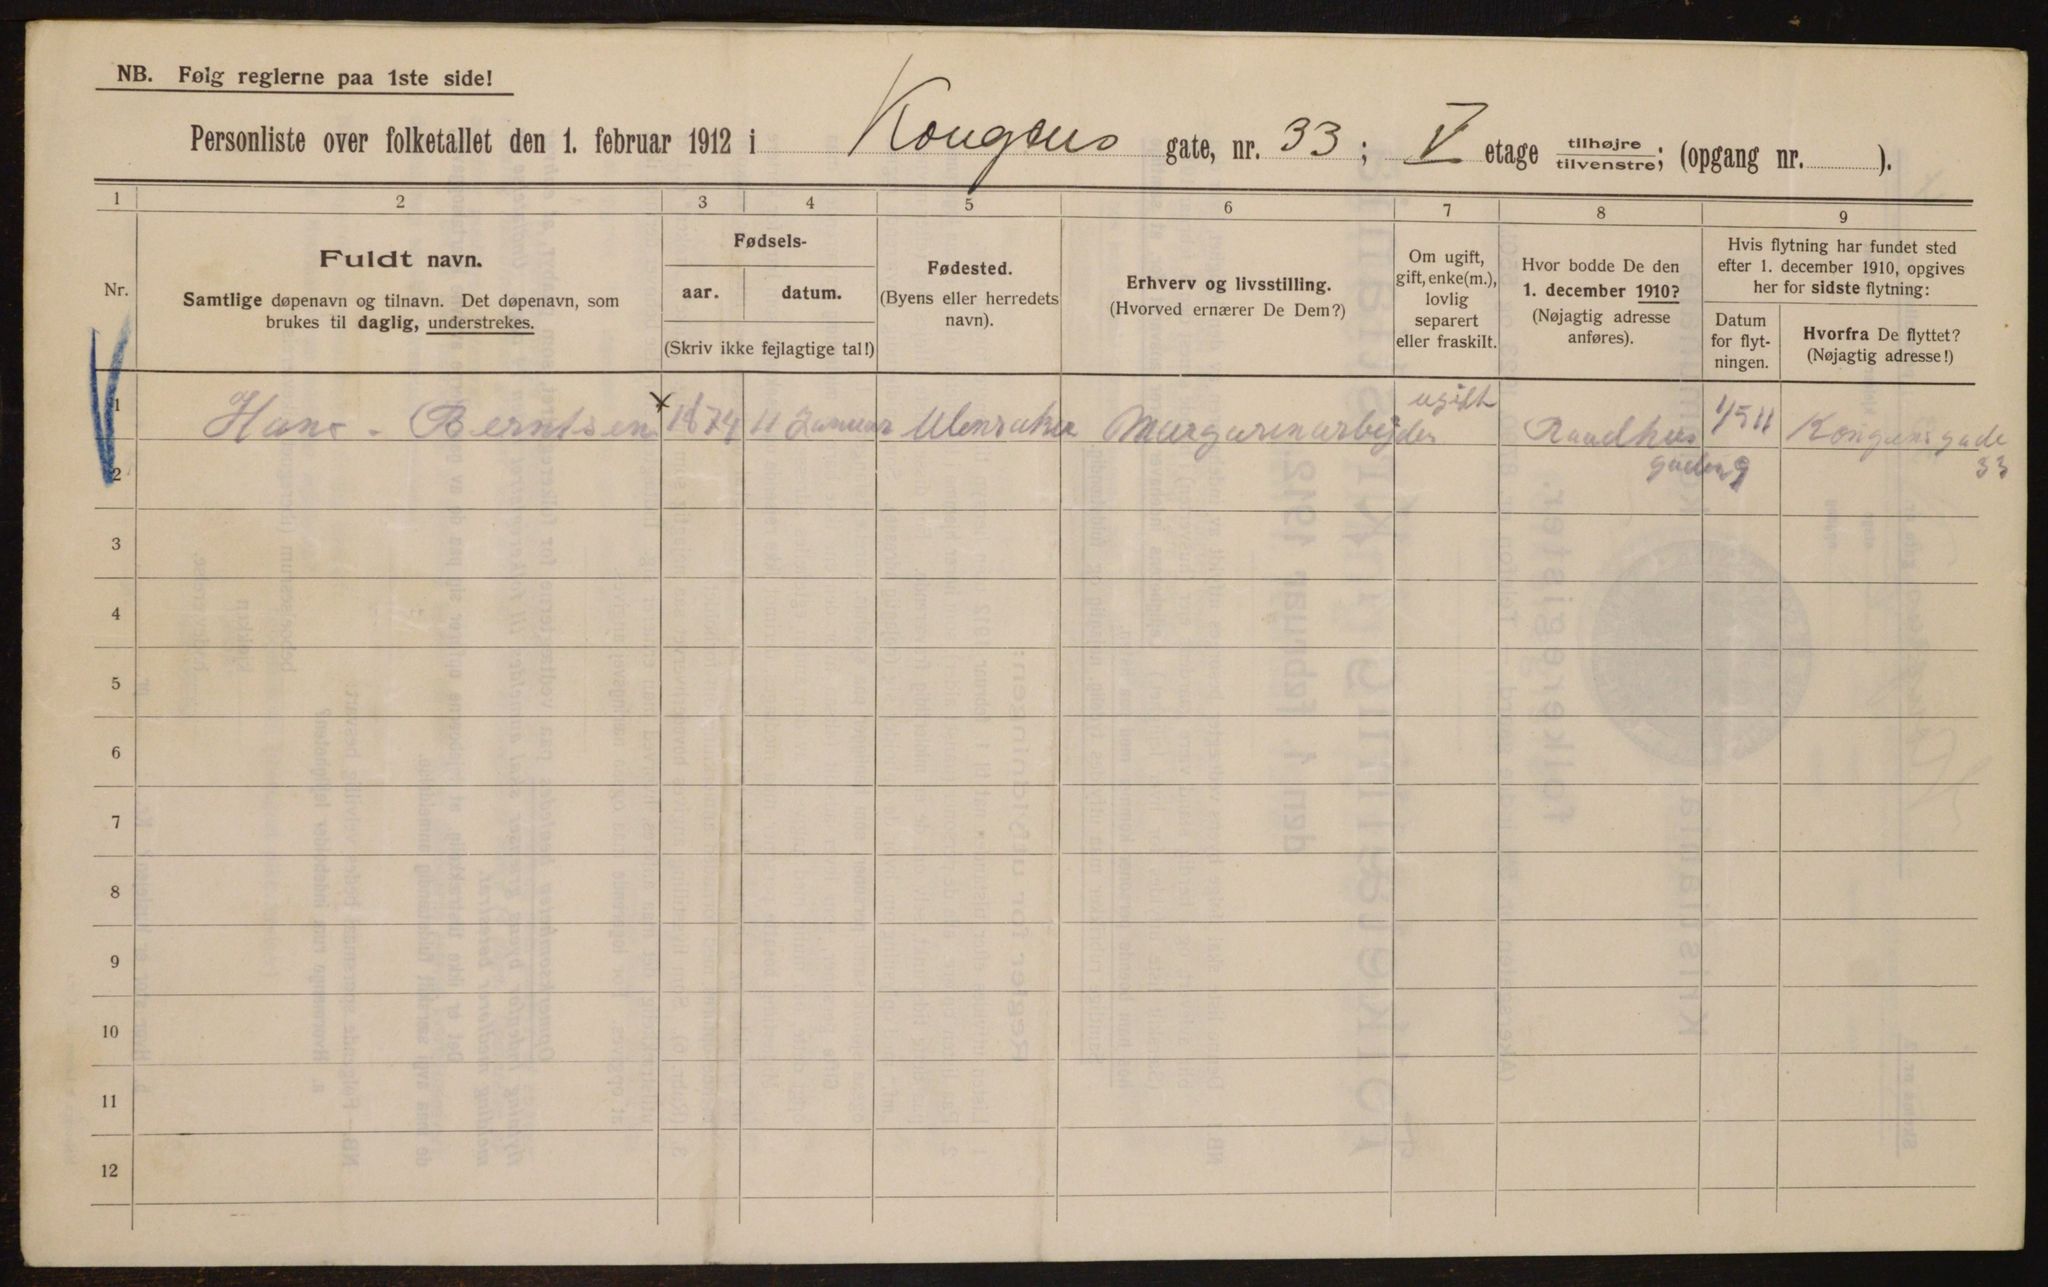 NB. Følg reglerne paa 1ste side!
Personliste over folketallet den 1. februar 1912 i Kongens gate, nr. 33; V etage tilhøjre/tilvenstre; (opgang nr. ).
1 2 3 4 5 6 7 8 9
Nr.
Fuldt navn.
Samtlige døpenavn og tilnavn. Det døpenavn, som
brukes til daglig, understrekes.
Fødsels-
aar. datum.
(Skriv ikke fejlagtige tal!)
Fødested.
(Byens eller herredets
navn).
Erhverv og livsstilling.
(Hvorved ernærer De Dem?)
Om ugift,
gift, enke(m.),
lovlig
separert
eller fraskilt.
Hvor bodde De den
1. december 1910?
(Nøjagtig adresse
anføres).
Hvis flytning har fundet sted
efter 1. december 1910, opgives
her for sidste flytning:
Datum
for flyt-
ningen.
Hvorfra De flyttet?
(Nøjagtig adresse!)
1 Hans - Berntsen 1874 11 Januar Ulensaker Margarinarbejder ugift Raadhus 1/5 11 Kongensgade
2 gaden 9 33
3
4
5
6
7
8
9
10
11
12